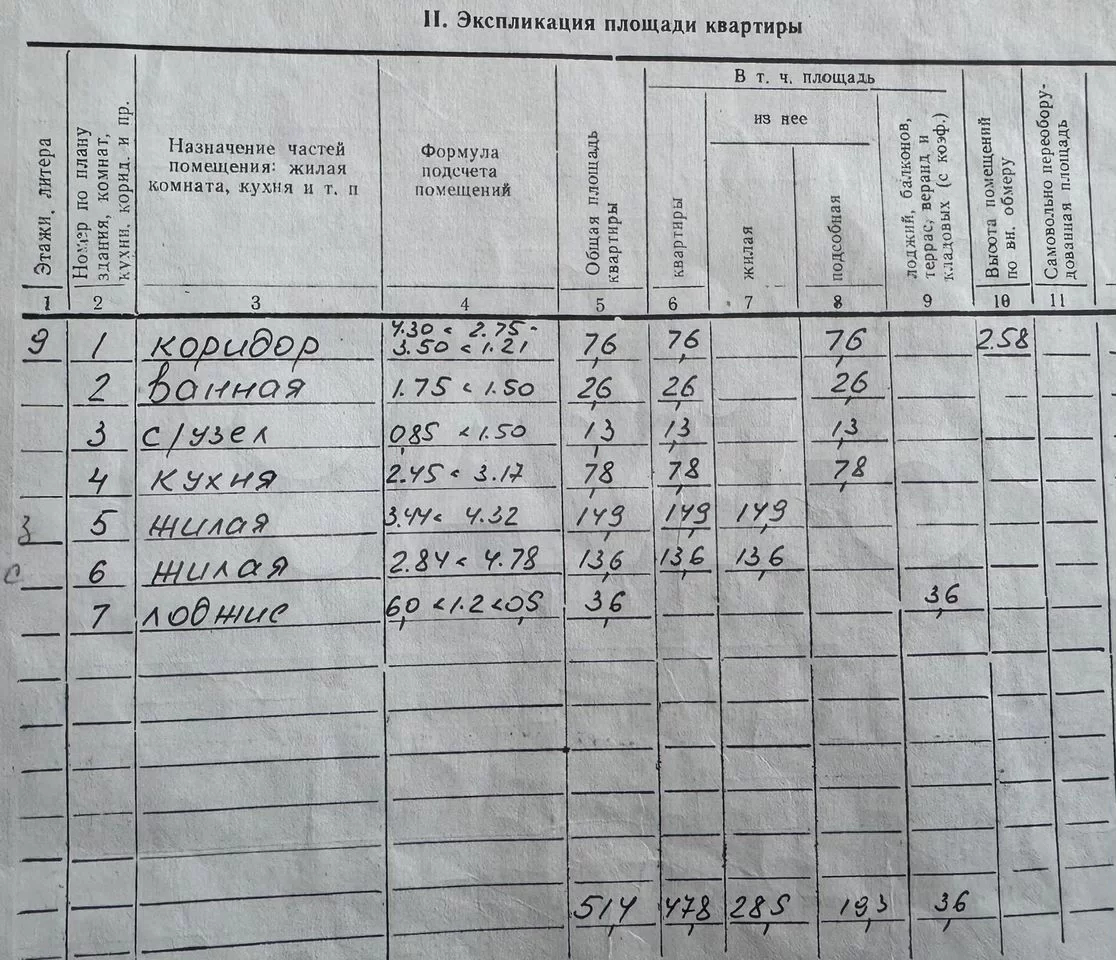 II. Экспликация площади квартиры
Этажи, литера
Номер по плану здания, комнат, кухни, корид. и пр.
Назначение частей
помещения: жилая
комната, кухня и т. п
Формула
подсчета
помещений
Общая площадь
квартиры
В т. ч. площадь
квартиры
из нее
жилая
подсобная
лоджий, балконов,
террас, веранд и
кладовых (с коэф.)
Высота помещений
по вн. обмеру
Самовольно переобору-
дованная площадь
1 2 3 4 5 6 7 8 9 10 11
9 1 коридор 4.30 < 2.75 - 3.50 < 1.21 7,6 7,6 7,6 2.58
2 ванная 1.75 < 1.50 2,6 2,6 2,6
3 с/узел 0,85 < 1.50 1,3 1,3 1,3
4 кухня 2.45 < 3.17 7,8 7,8 7,8
5 жилая 3.44 < 4.32 14,9 14,9 14,9
6 жилая 2.84 < 4.78 13,6 13,6 13,6
7 лоджис 6,0 < 1.2 < 0,5 3,6 3,6
51,4 47,8 28,5 19,3 3,6